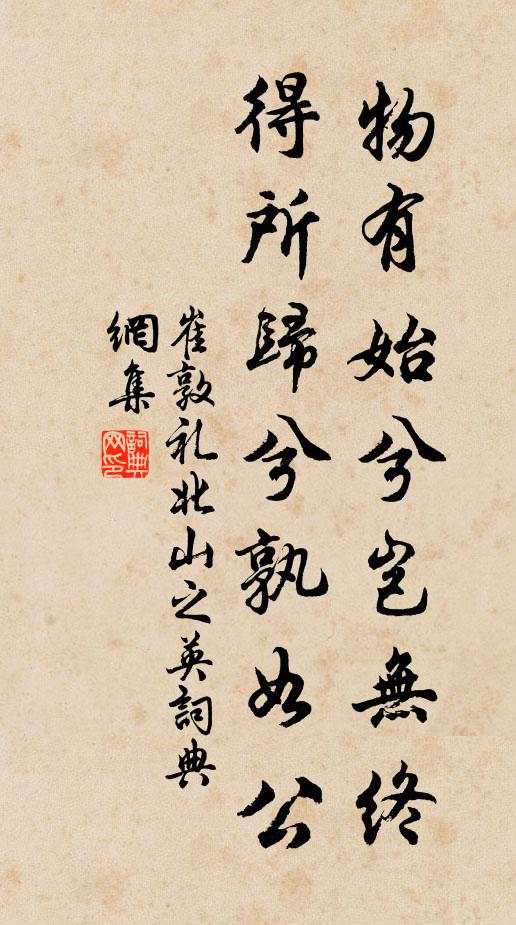 物有始兮岂無終
得所歸兮孰如公
崔敦礼北山之英詞典
網集
詞典
网印